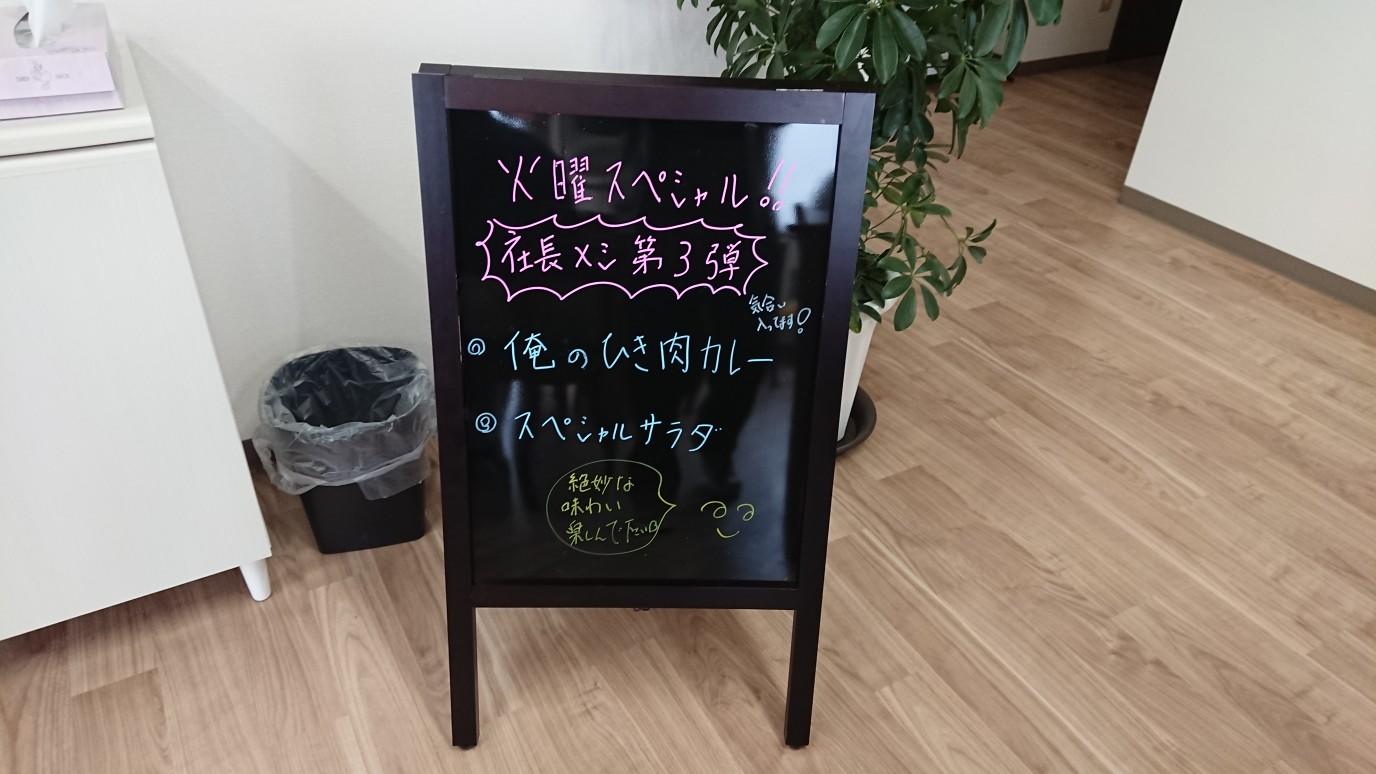 火曜スペシャル!!
社長メシ第3弾
気合い
入ってます!
◎ 俺のひき肉カレー
◎ スペシャルサラダ
絶妙な
味わい
楽しんで下さい